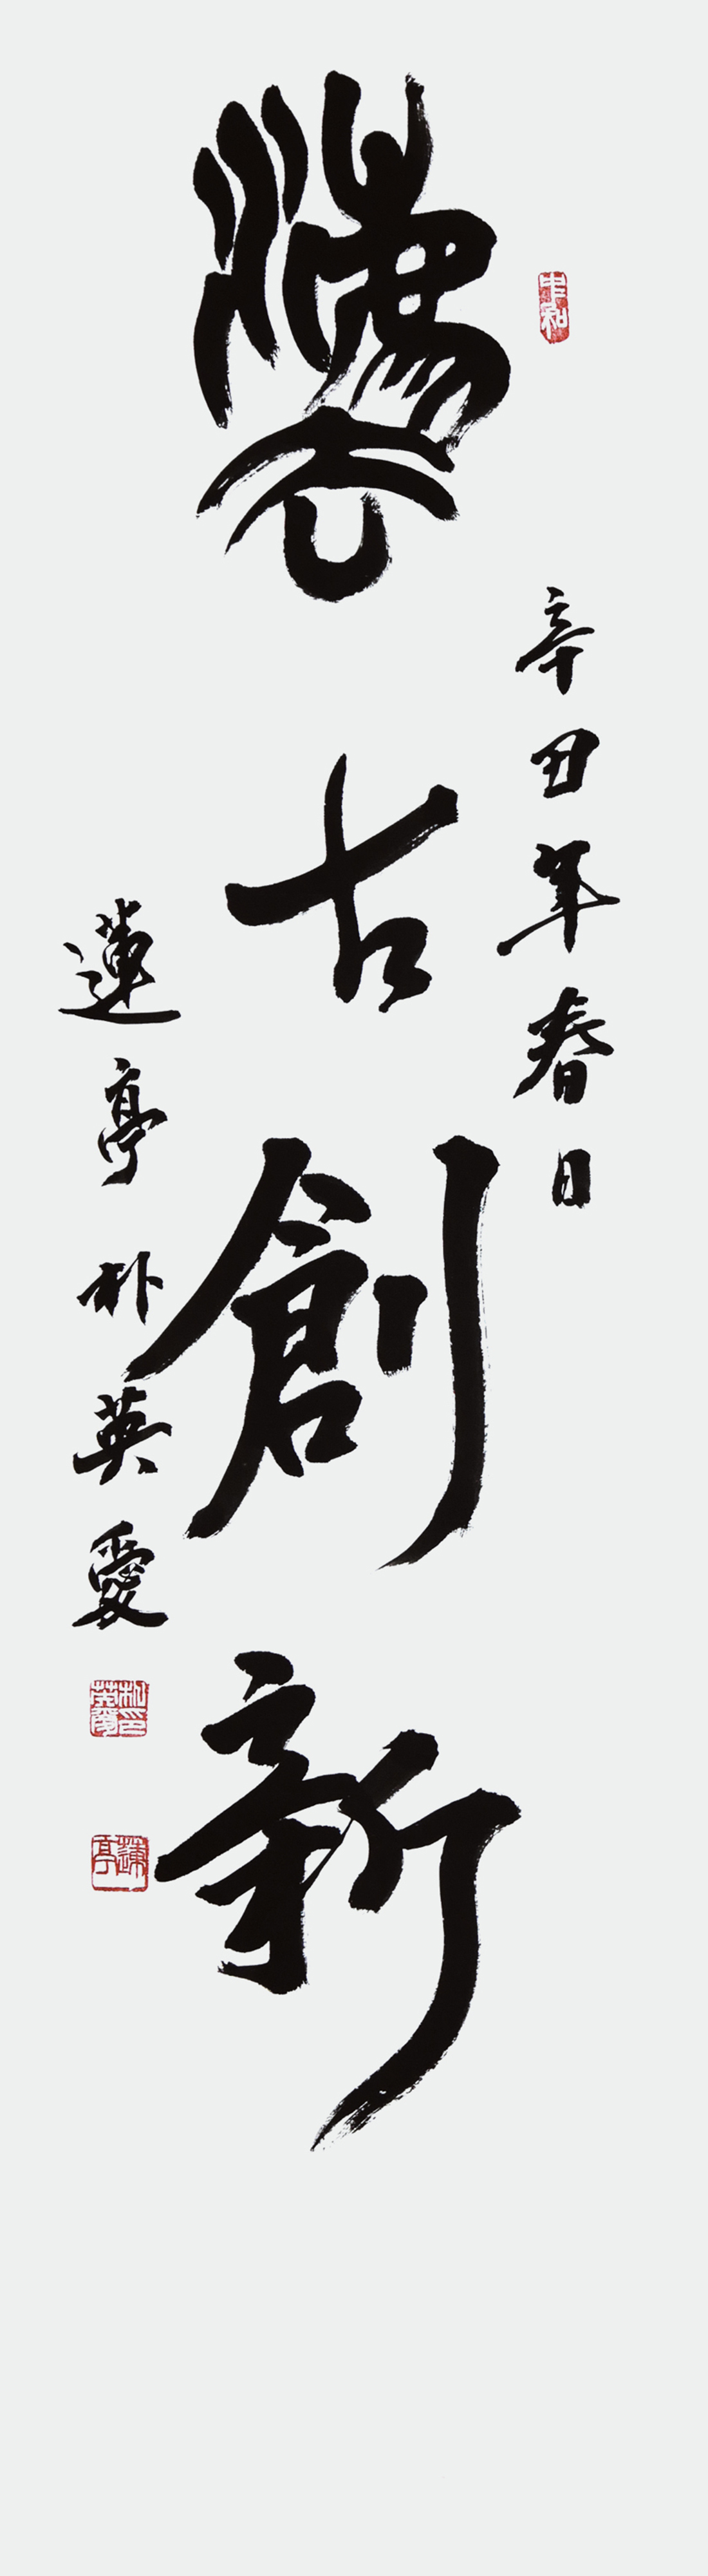 中和
辛丑年春日
灋古創新
蓮亭 朴英愛
朴印英愛
蓮亭